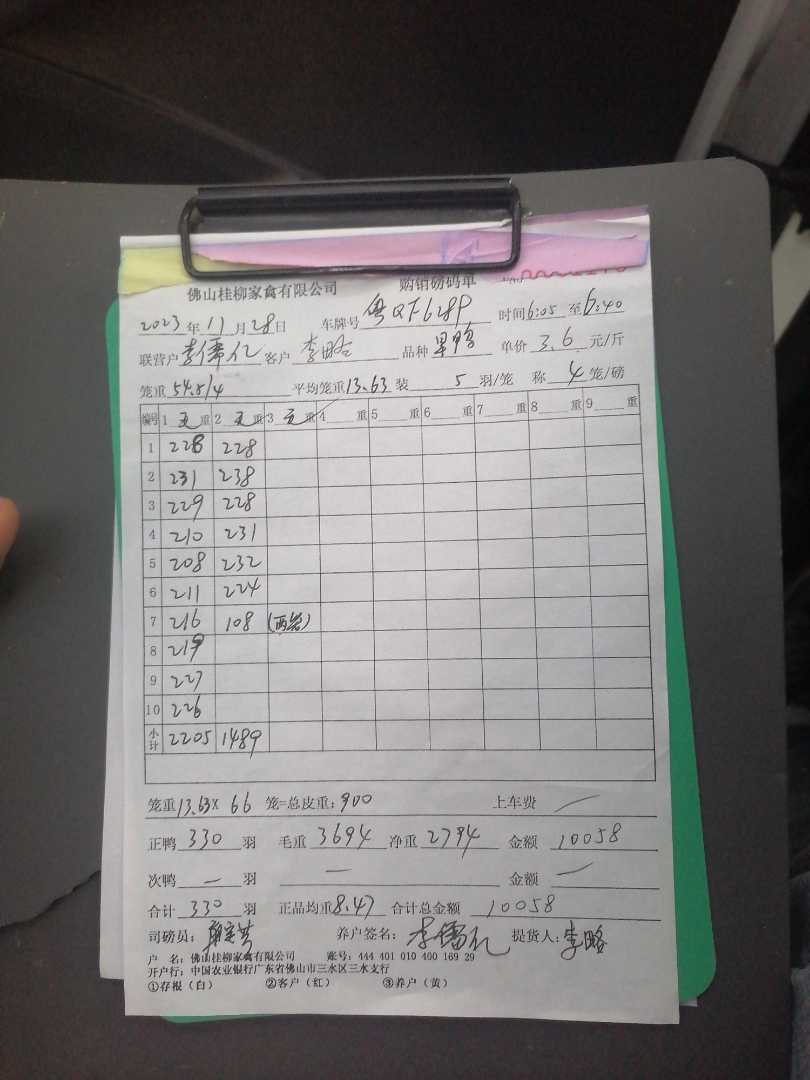 佛山桂柳家禽有限公司 购销磅码单
2023年11月28日 车牌号 粤QF628P 时间6:05至6:40
联营户 李儒亿 客户 李略 品种 果鸭 单价 3.6 元/斤
笼重 54.5/4 平均笼重13.63装 5 羽/笼 称 4 笼/磅
编号 1 毛 重 2 毛 重 3 毛 重 4 重 5 重 6 重 7 重 8 重 9 重
1 228 228
2 231 238
3 229 228
4 210 231
5 208 232
6 211 224
7 216 108 (两笼)
8 219
9 227
10 226
小计 2205 1489
笼重13.63× 66 笼=总皮重:900 上车费 /
正鸭 330 羽 毛重 3694 净重 2794 金额 10058
次鸭 — 羽 — 金额 —
合计 330 羽 正品均重8.47 合计总金额 10058
司磅员: 养户签名: 李儒亿 提货人: 李略
户 名: 佛山桂柳家禽有限公司 账号: 444 401 010 400 169 29
开户行: 中国农业银行广东省佛山市三水区三水支行
①存根(白) ②客户(红) ③养户(黄)